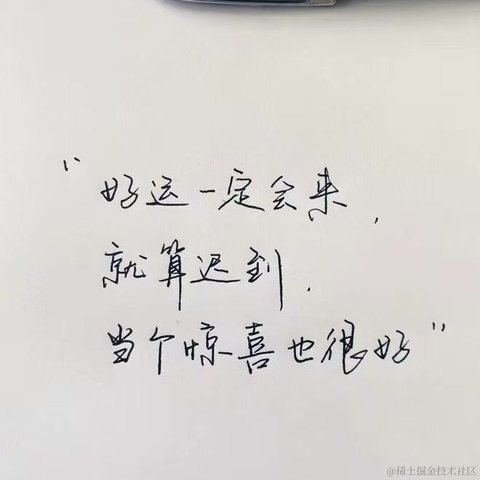 “好运一定会来，
就算迟到，
当个惊喜也很好”
@稀土掘金技术社区